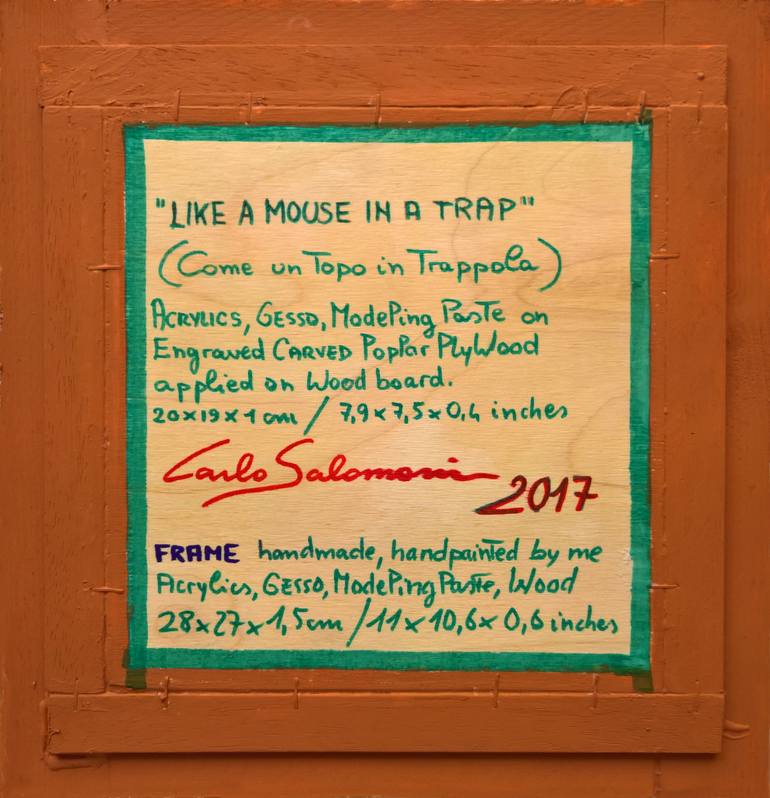 "LIKE A MOUSE IN A TRAP"
(Come un Topo in Trappola)
ACRYLICS, GESSO, Modeling Paste on
Engraved CARVED Poplar PlyWood
applied on Wood board.
20x19x1 cm / 7,9x7,5x0,4 inches
Carlo Salomoni 2017
FRAME handmade, handpainted by me
Acrylics, GESSO, Modeling Paste, Wood
28x27x1,5cm / 11x10,6x0,6 inches